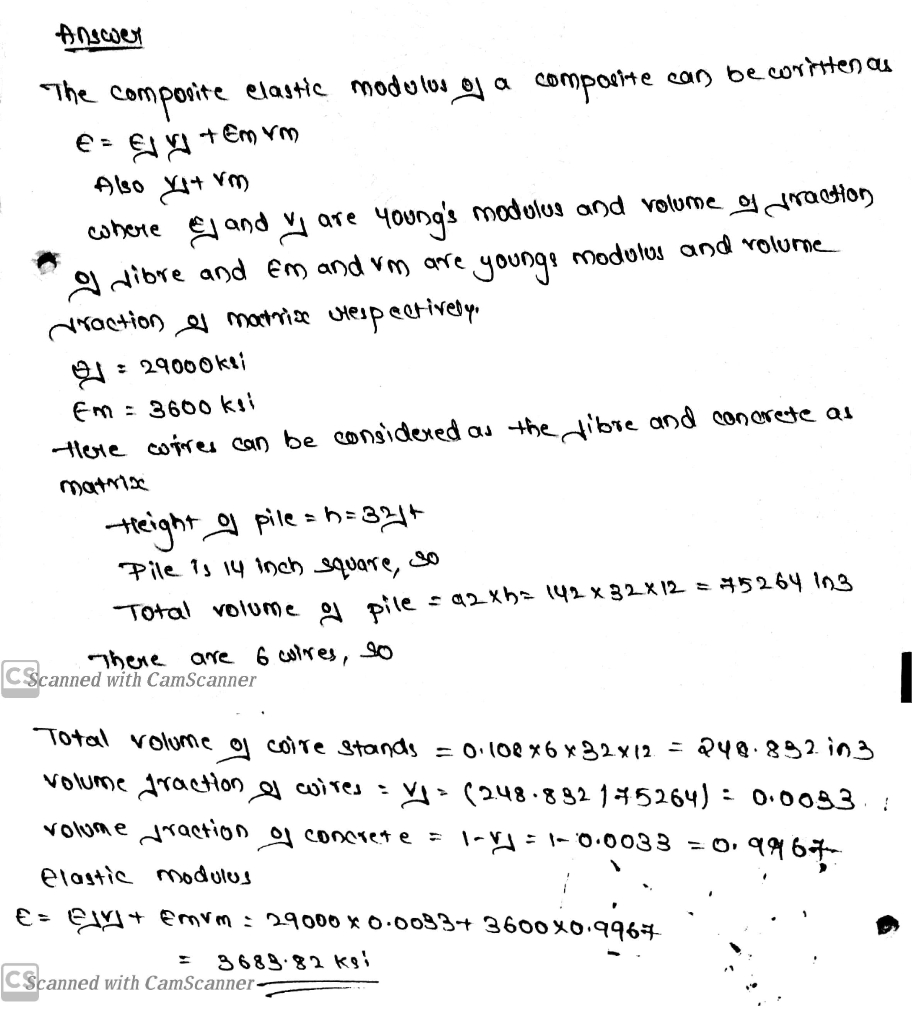 Answer
The composite elastic modulus of a composite can be written as
E = Ef Vf + Em Vm
Also Vf + Vm
where Ef and Vf are Young's modulus and volume of fraction
of fibre and Em and Vm are youngs modulus and volume
fraction of matrix respectively.
Ef = 29000ksi
Em = 3600 ksi
Here wires can be considered as the fibre and concrete as
matrix
Height of pile = h = 32ft
Pile is 14 inch square, so
Total volume of pile = a2 x h = 142 x 32 x 12 = 75264 in3
There are 6 wires, so
CS Scanned with CamScanner
Total volume of wire stands = 0.108 x 6 x 32 x 12 = 248.832 in3
volume fraction of wires = Vf = (248.832 / 75264) = 0.0033
volume fraction of concrete = 1-Vf = 1-0.0033 = 0.9967
elastic modulus
E = EfVf + EmVm = 29000 x 0.0033 + 3600 x 0.9967
= 3683.82 ksi
CS Scanned with CamScanner